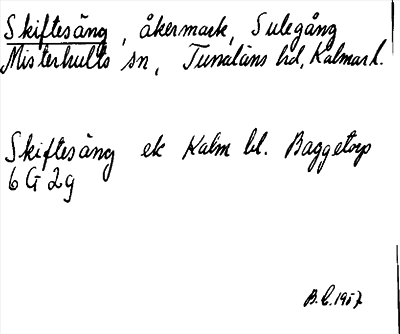 Skiftesäng, åkermark, Sulegång
Misterhults sn, Tunaläns hd, Kalmar l.
Skiftesäng ek Kalm bl. Baggetorp
6 G 2 g
B.L. 1957